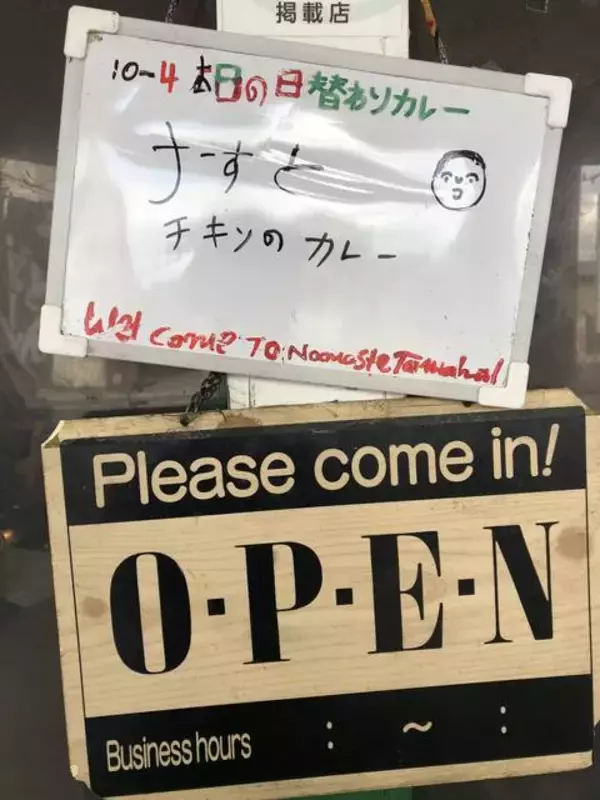 掲載店
10-4 本日の日替わりカレー
ナーすと
チキンの カレー
Wel come To Noomaste
Please come in!
O·P·E·N
Business hours : ~ :